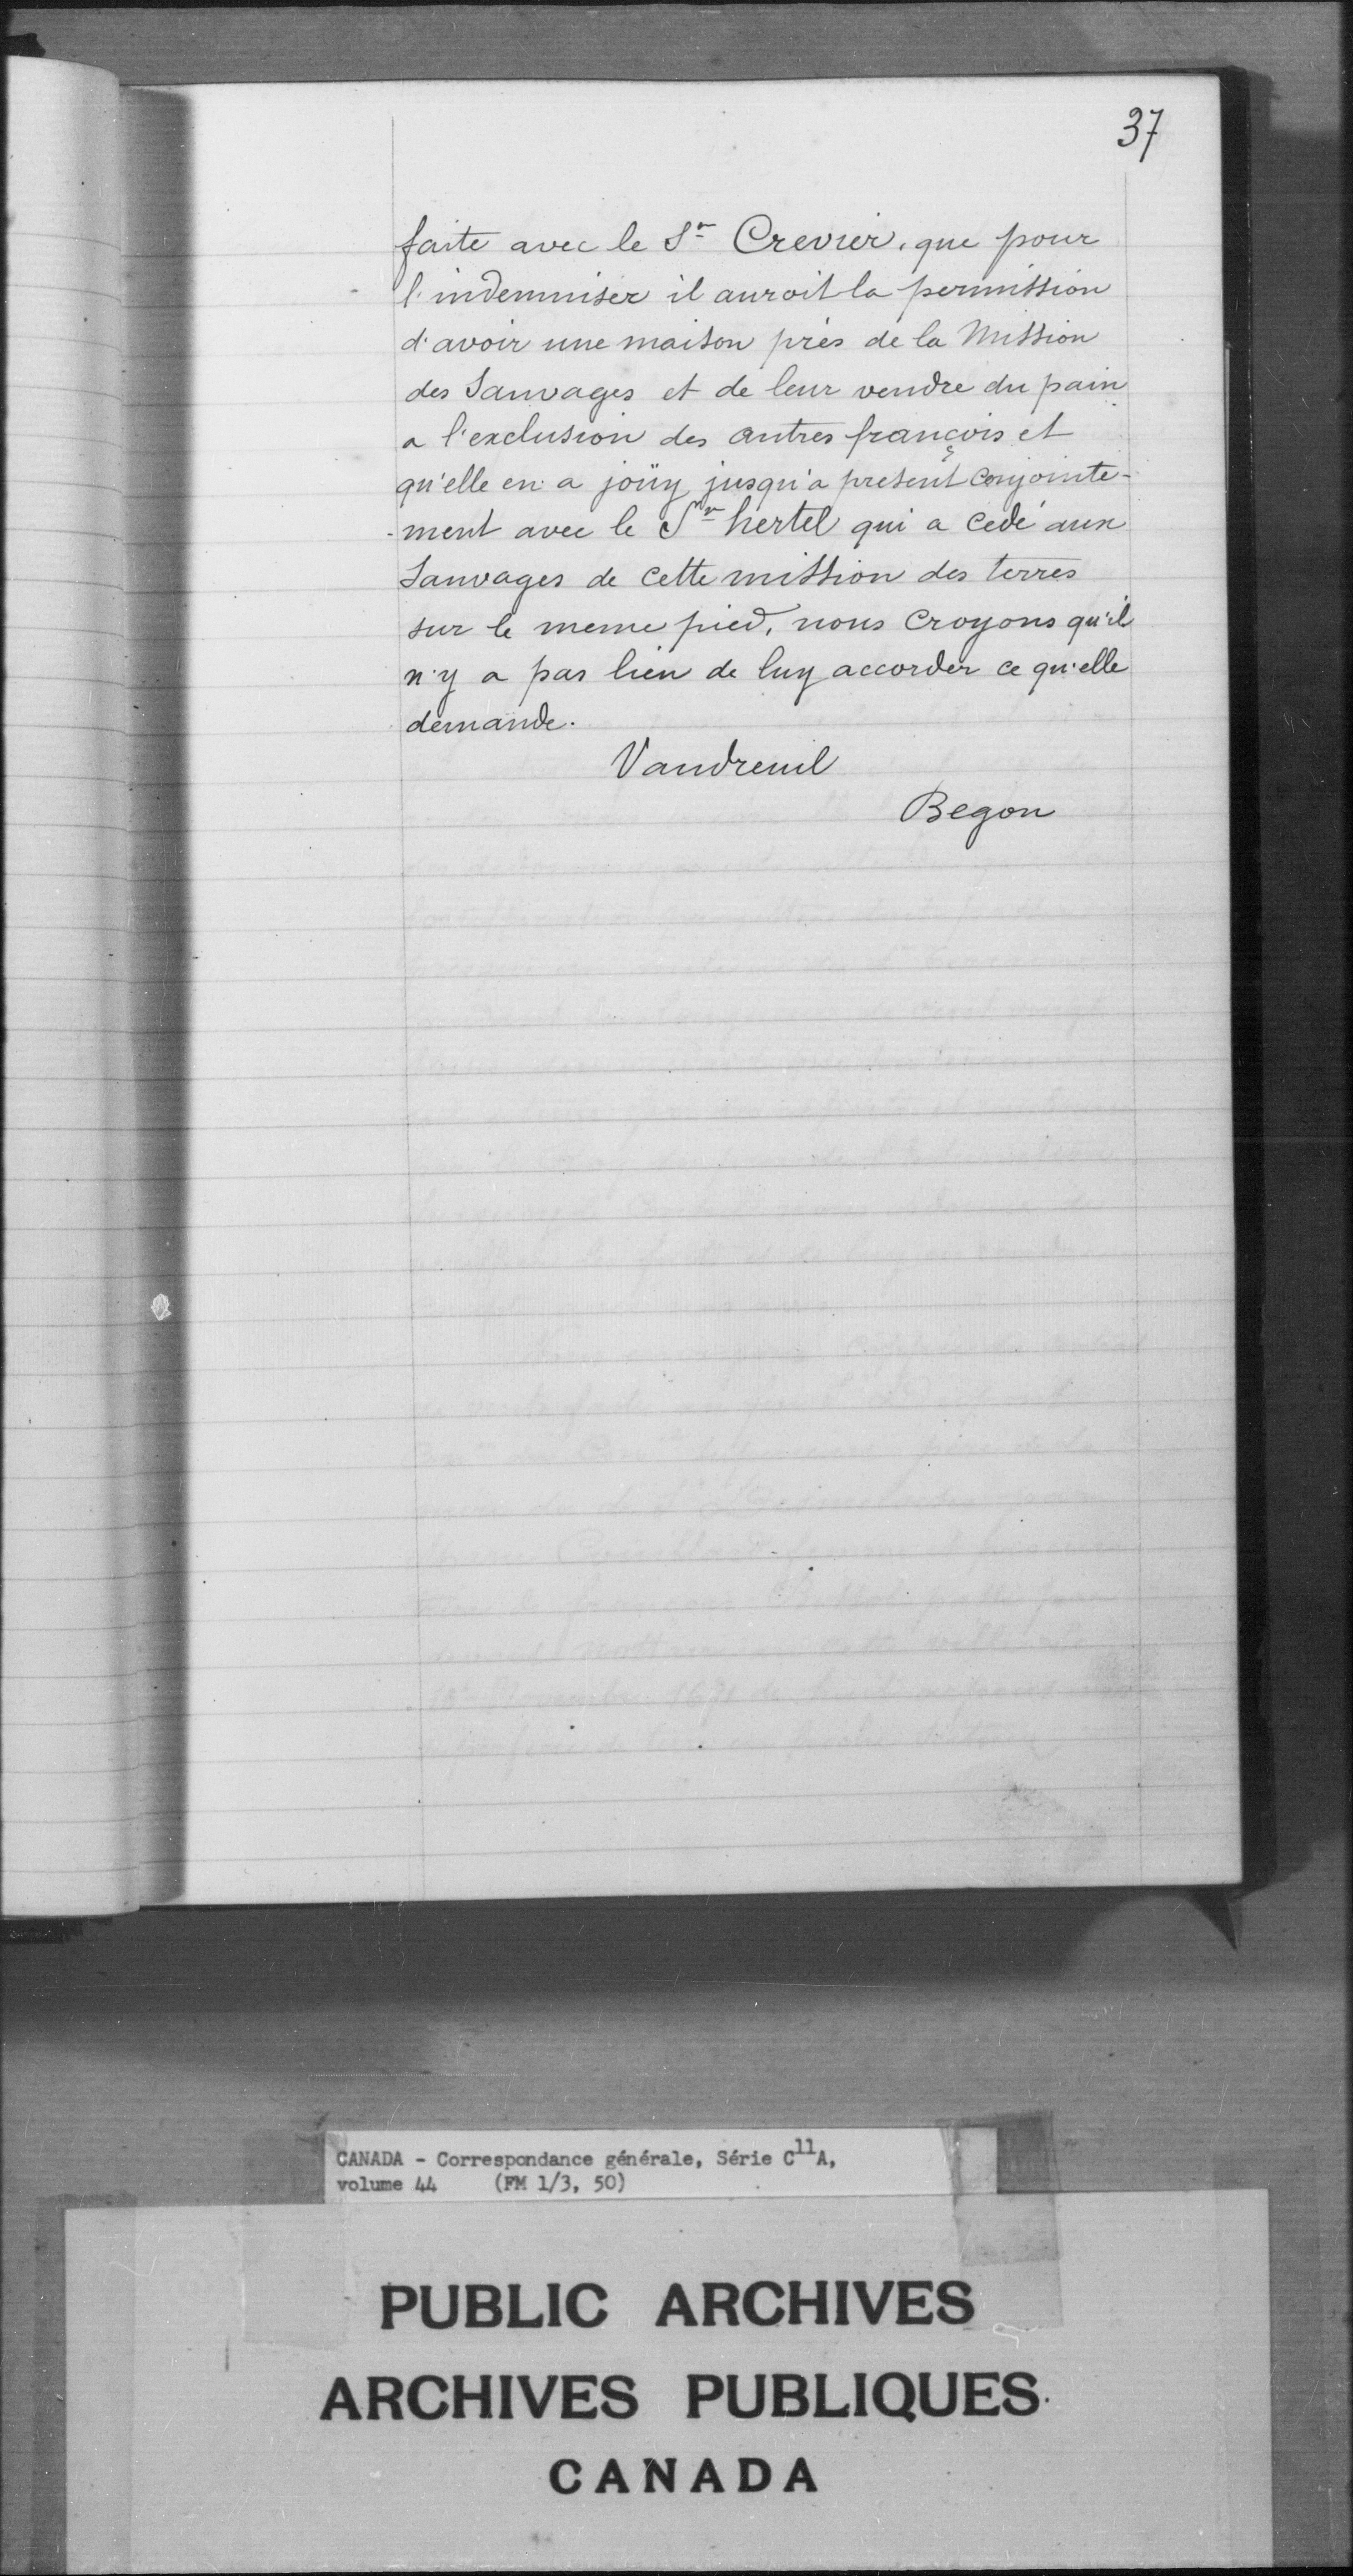 37
faite avec le Sr Crevier, que pour
l'indemniser il auroit la permission
d'avoir une maison près de la Mission
des Sauvages et de leur vendre du pain
a l'exclusion des autres françois et
qu'elle en a joüy jusqu'a present conjointe-
-ment avec le Sr hertel qui a cedé aux
Sauvages de cette mission des terres
sur le meme pied, nous croyons qu'il
n'y a pas lieu de luy accorder ce qu'elle
demande.
Vaudreuil
Begon
CANADA - Correspondance générale, Série C11A,
volume 44 (FM 1/3, 50)
PUBLIC ARCHIVES
ARCHIVES PUBLIQUES
CANADA